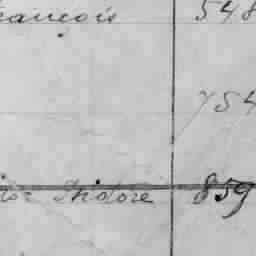 rançois 548
754
Isidore 859